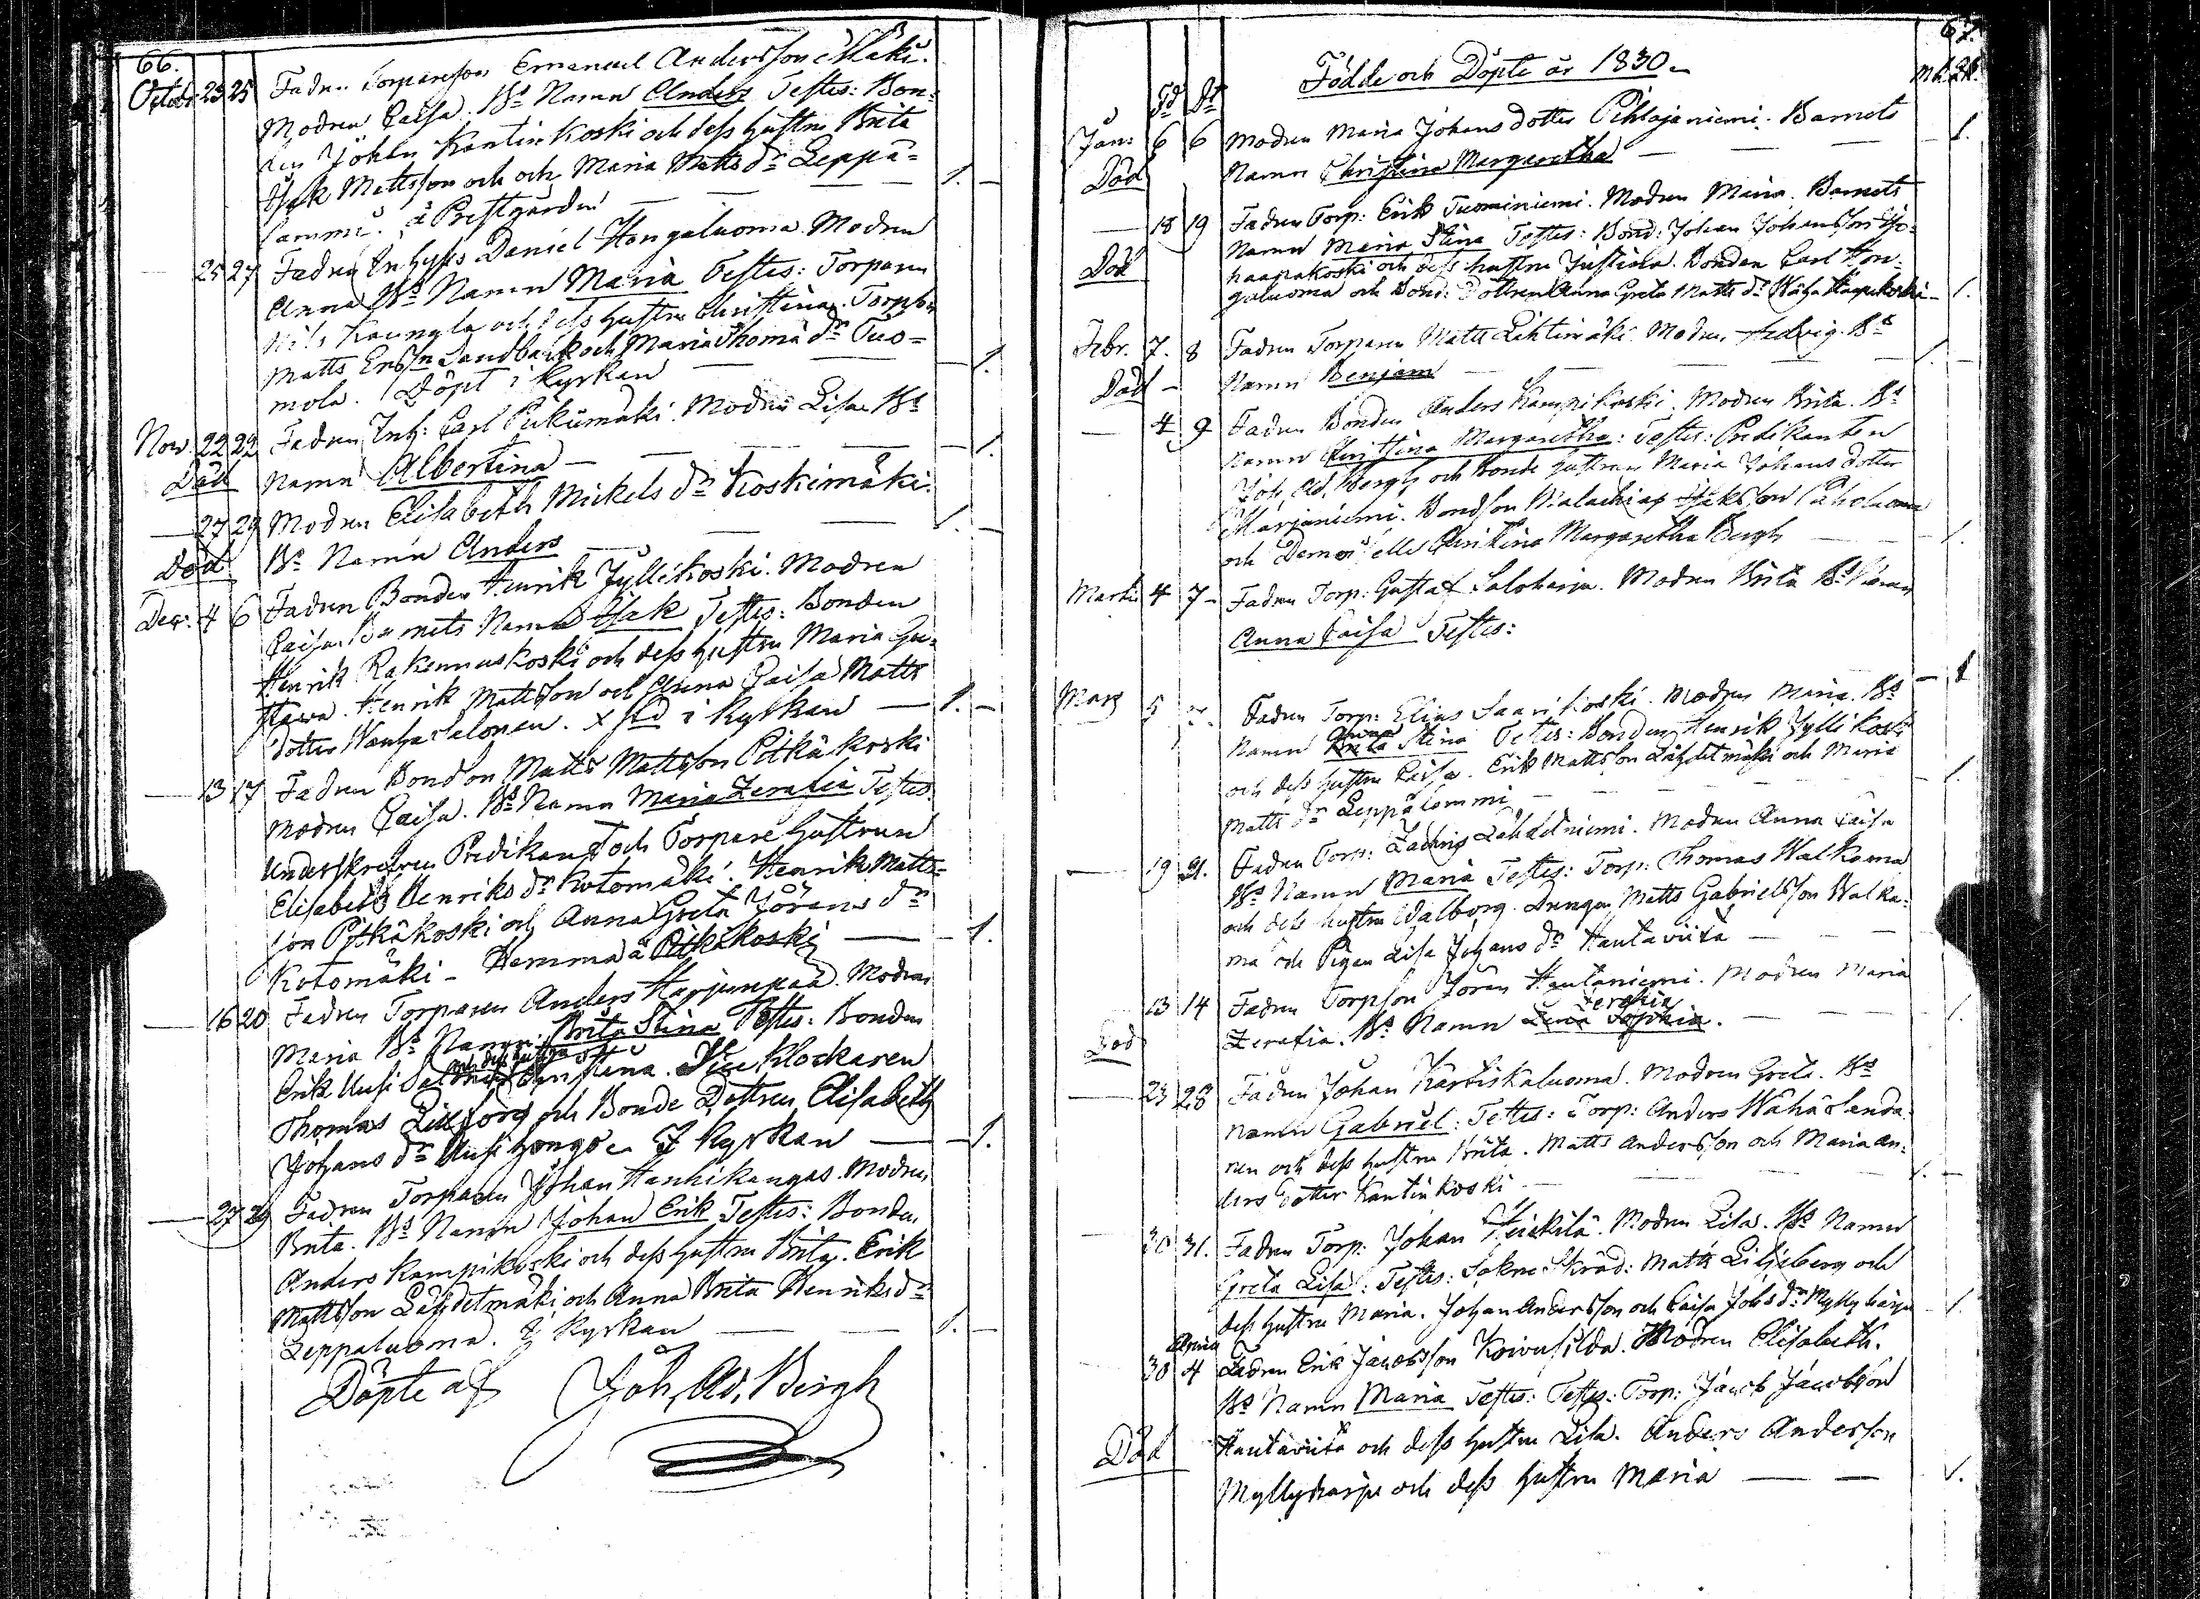 66.
October 23 25 Fadren Torparesson Emanuel Andersson Mäki.
Modren Caisa. Bs Namn Anders Testes: Bon-
den Johan Kantinkoski och dess hustru Brita
Isak Mattsson och och Maria Matts dr Leppä-
lammi. å Prestgården — — 1. —
25 27 Fadren Inhyses Daniel Hongaluoma. Modren
Anna Bs Namn Maria Testes: Torparen
Nils Kaungla och dess hustru Christina. Torpson
Matts Ersson Sandback och Maria Thomä dr Tuo-
mola. Döpt i Kyrkan — — 1. —
Nov. 22 22 Fadren Inh: Carl Pukumäki. Modren Lisa Bs
Död Namn Albertina — — — 1. —
— 27 29 Modren Elisabeth Mickels dr Koskimäki.
Död Bs Namn Anders — — — 1. —
Decr. 4 6 Fadren Bonden Henrik Jyllikoski. Modren
Caisa. Barnets Namn Isak Testes: Bonden
Henrik Rakennuskoski och dess hustru Maria Gu-
stava. Henrik Mattsson och Anna Caisa Matts
dotter Wanhasalonen. i Kyrkan — 1. —
— 13 17 Fadren Bondson Matts Mattsson Pitkäkoski
Modren Caisa. Bs Namn Maria Zerafia Testes
Underskrefven Predikant och Torpare hustrun
Elisabeth Henriks dr Kotomäki. Henrik Matts-
son Pitkäkoski och Anna Greta Jörans dr
Kotomäki — Hemma å Pitkäkoski — 1.
— 16 20 Fadren Torparen Anders Harjunpää. Modren
Maria Bs Namn: Brita Stina Testes: Bonden
och dess hustru
Erik Uusi Salo Christina. Vice Klockaren
Thomas Lillfors och Bonde Dottren Elisabeth
Johans dr Uusihongo. I Kyrkan — 1.
— 27 29 Fadren Torparen Johan Hanhikangas. Modren
Brita. Bs Namn Johan Erik Testes: Bonden
Anders Kampikoski och dess hustru Brita. Erik
Mattsson Lähdetmäki och Anna Brita Henriks dr
Leppaluoma. I Kyrkan — — 1. —
Döpte af Joh. Ad. Bergh
67.
Födde och Döpte år 1830.
Fd Dt
Jan: 6 6 Modren Maria Johans dotter Pihlajaniemi. Barnets
Död Namn Christina Margaretha — — — 1.
— 18 19 Fadren Torp: Erik Tuominiemi. Modren Maria. Barnets
Namn Maria Stina Testes: Bond: Johan Johansson Iso-
Död haapakoski och dess hustru Justina. Bonden Carl Hon-
galuoma och Bond: Dottren Anna Greta Matts dr Wäha Haapakoski — 1.
Febr. 7. 8 Fadren Torparen Matts Lehtimäki. Modren Hedvig. Bs
Död — Namn Benjam — — 1.
— 4 9 Fadren Bonden Anders Kampikoski. Modren Brita. Bs
Namn Christina Margaretha: Testes: Predikanten
Joh. Ad. Bergh och Bonde hustrun Maria Johans dotter
Marjaniemi. Bondson Malachias Isaksson Paholuoma
och Demoiselle Christina Margaretha Bergh — 1.
Martii 4 7 — Fadren Torp: Gustaf Saloharju. Modren Brita Bs Namn
Anna Caisa Testes:
— 1
Mars 5 7. Fadren Torp: Elias Saarikoski. Modren Maria. Bs
Anna
Namn Brita Stina Testes: Bonden Henrik Jyllikoski
och dess hustru Caisa. Erik Mattsson Lähdetmäki och Maria
Matts dr Leppälammi — — 1.
— 19 21. Fadren Torp: Zachris Lähdetniemi. Modren Anna Caisa
Bs Namn Maria Testes: Torp: Thomas Walkama
och dess hustru Walborg. Drengen Matts Gabrielsson Walka-
ma och Pigan Lisa Johans dr Hautaviita — — —
13 14 Fadren Torpson Jöran Hautaniemi. Modren Maria
Zerafia
Död Zerafia. Bs Namn Lena Sophia. — — 1.
— 23 28 Fadren Johan Karhiskaluoma. Modren Greta. Bs
Namn Gabriel: Testes: Torp: Anders Wähäsanda-
nen och dess hustru Brita. Matts Andersson och Maria An-
ders dotter Kantinkoski — — 1. —
30 31. Fadren Torp: Johan Heikkilä. Modren Lisa. Bs Namn
Greta Lisa: Testes: Sokne Skräd: Matts Liljeberg och
dess hustru Maria. Johan Andersson och Caisa Johs dr Myllyharju — 1.
Aprill
30 4 Fadren Erik Jacobsson Koivusilda. Modren Elisabeth.
Bs Namn Maria Testes: Testes: Torp: Jacob Jacobsson
Död Hautaviita och dess hustru Lisa. Anders Andersson
Myllyharju och dess hustru Maria — — 1.